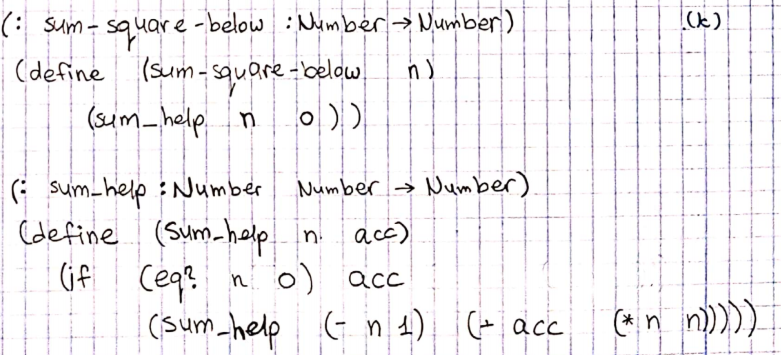 (: sum-square-below : Number → Number) (k)
(define (sum-square-below n)
(sum_help n 0))
(: sum_help : Number Number → Number)
(define (sum_help n acc)
(if (eq? n 0) acc
(sum_help (- n 1) (+ acc (* n n)))))